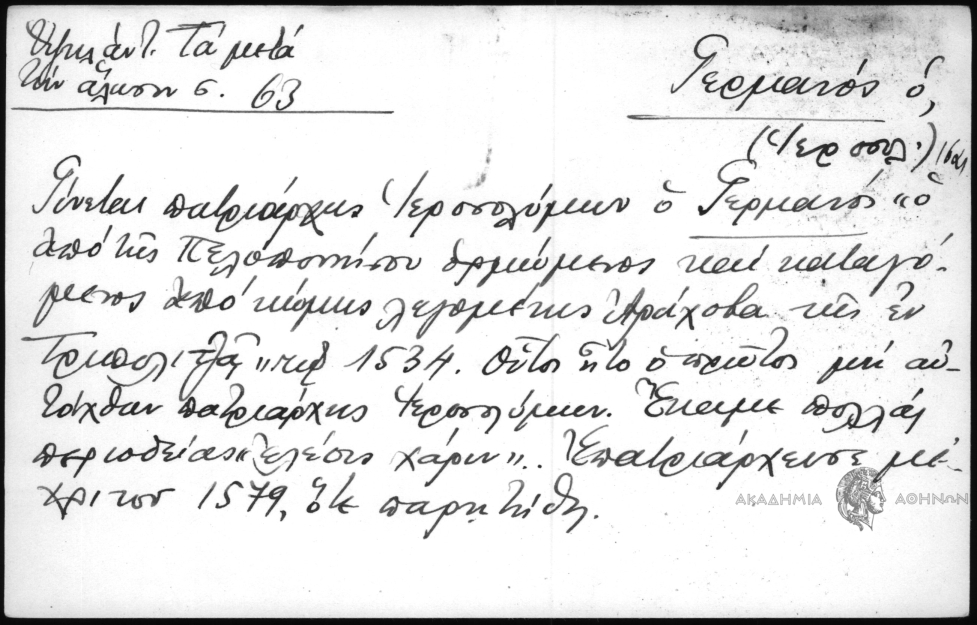 Ὑψηλάντ. Τὰ μετὰ
τὴν ἅλωσιν σ. 63
Γερμανός ὁ,
(Ἱεροσολ.)
Γίνεται πατριάρχης Ἱεροσολύμων ὁ Γερμανός «ὁ
ἀπό τῆς Πελοποννήσου ὁρμώμενος καί καταγό-
μενος ἀπό κώμης λεγομένης Ἀράχοβα τῆς ἐν
Τριπολιτζᾷ» τῷ 1534. Οὗτος ἦτο ὁ πρῶτος μή αὐ-
τόχθων πατριάρχης Ἱεροσολύμων. Ἔκαμε πολλάς
περιοδείας «ἐλέους χάριν». Ἐπατριάρχευσε μέ-
χρι του 1579, ὅτε παρῃτήθη.
ΑΚΑΔΗΜΙΑ ΑΘΗΝΩΝ